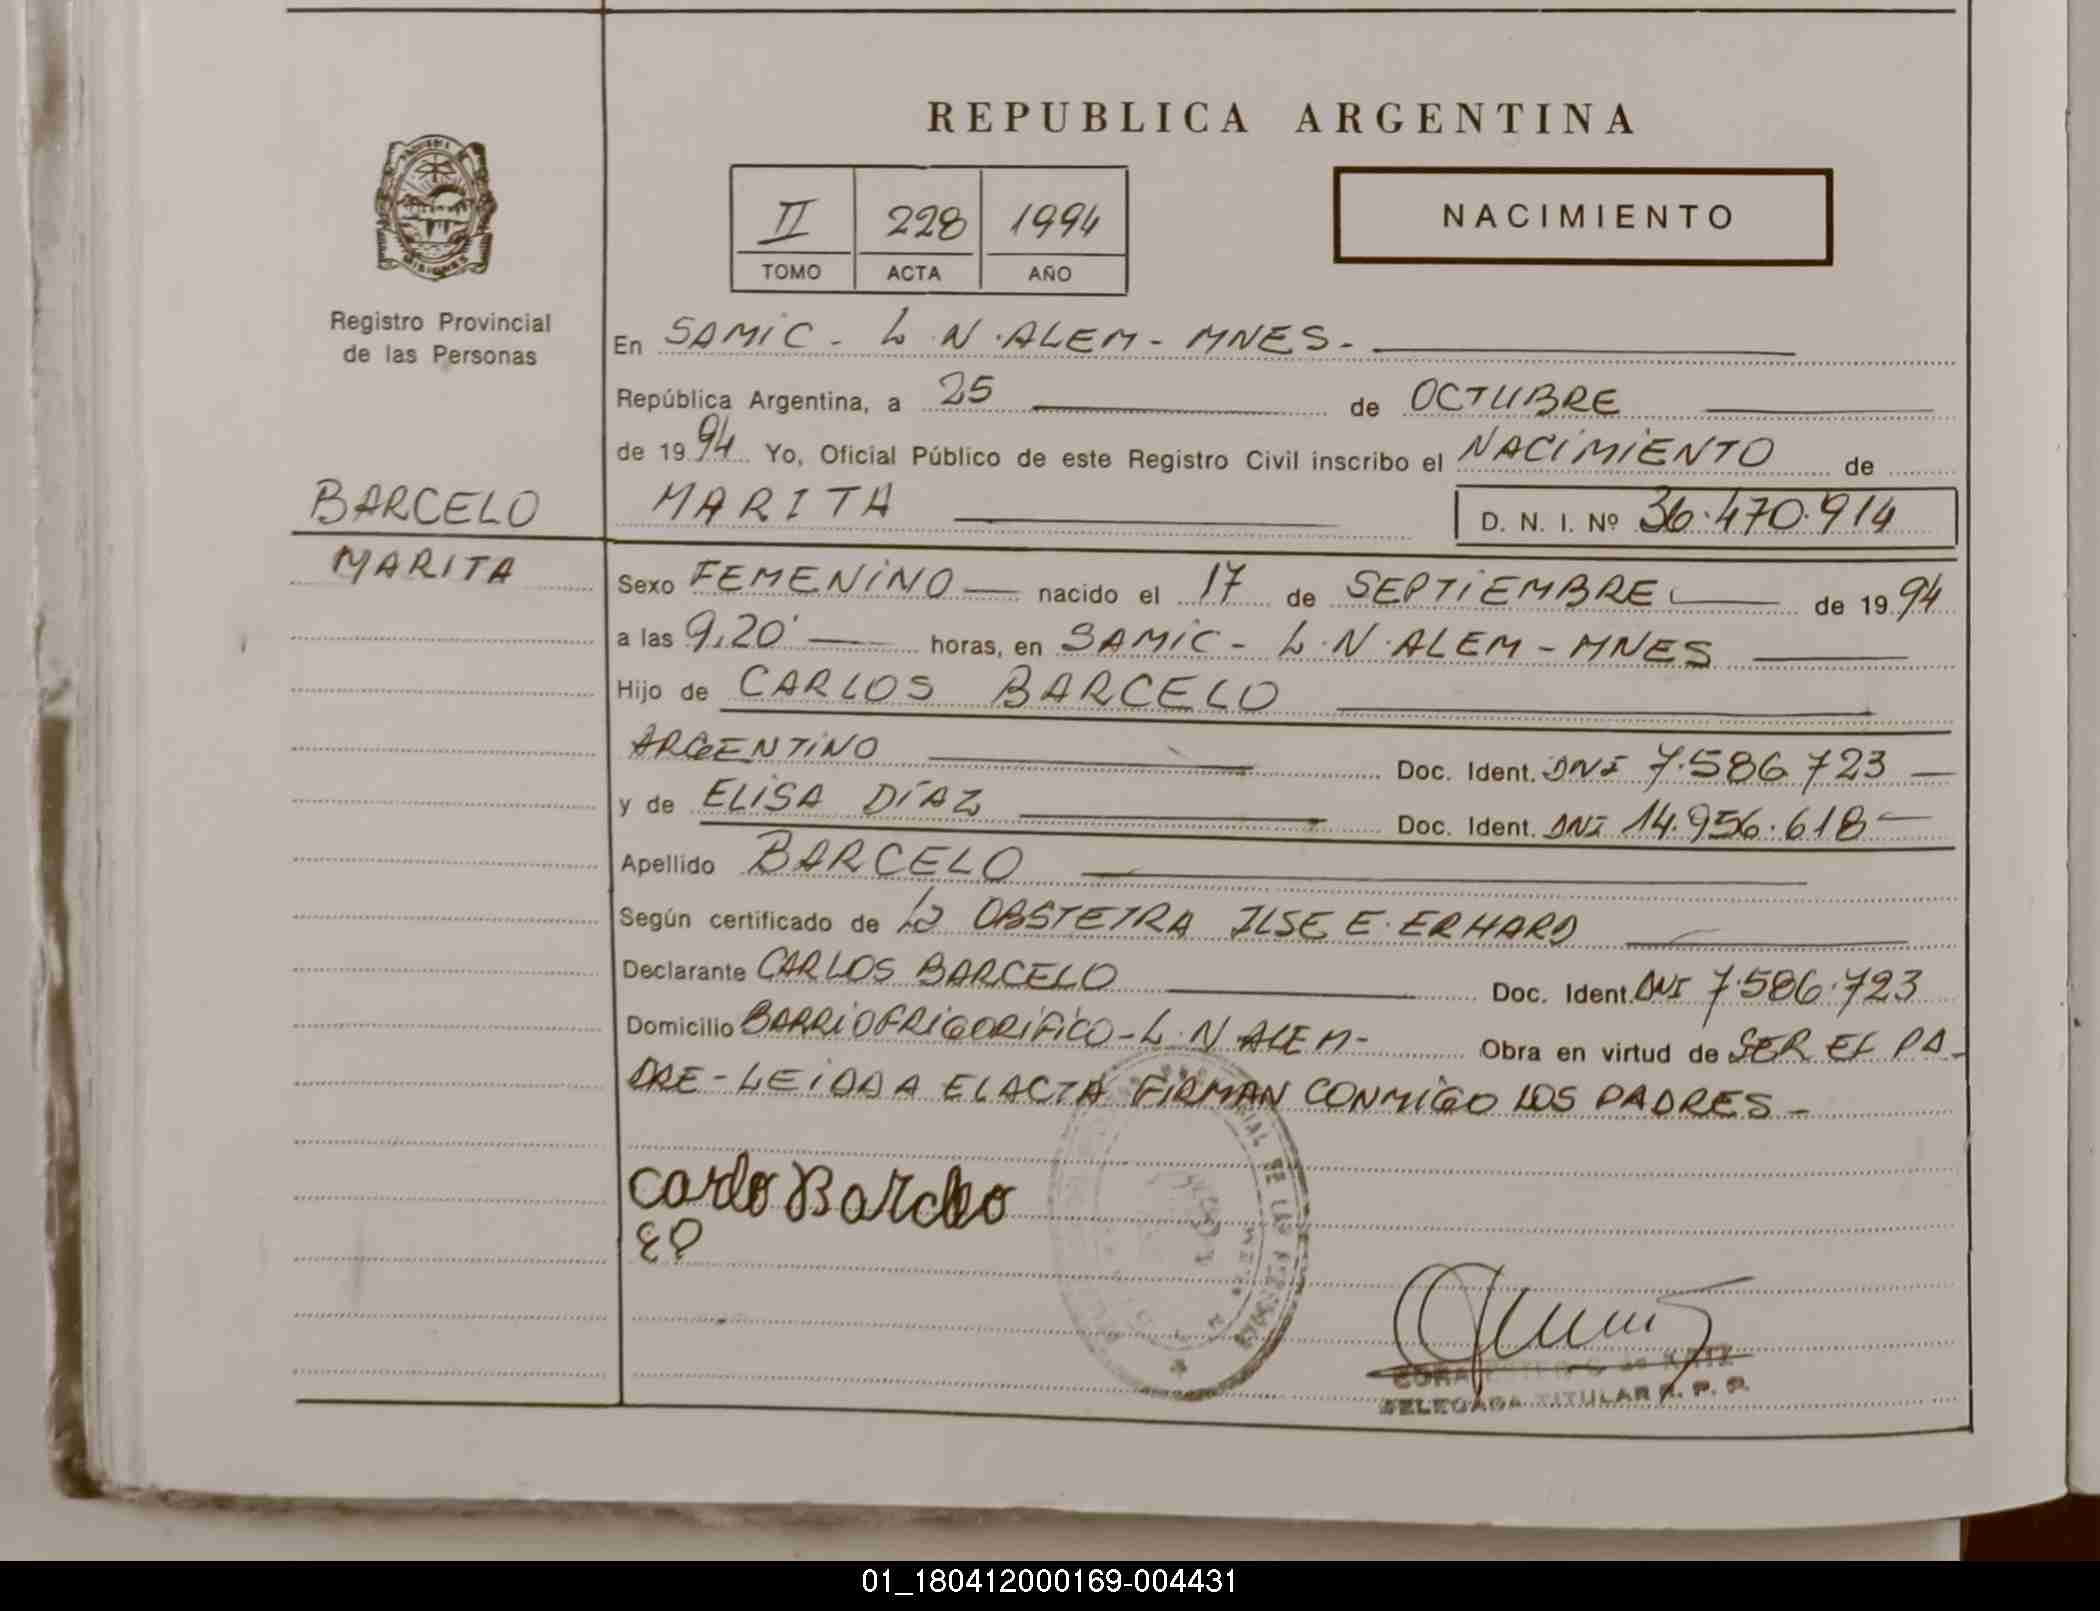 REPUBLICA ARGENTINA
MISIONES
Registro Provincial
de las Personas
II 228 1994
TOMO ACTA AÑO
NACIMIENTO
En SAMIC - L.N.ALEM - MNES -
República Argentina, a 25 de OCTUBRE
de 1994 Yo, Oficial Público de este Registro Civil inscribo el NACIMIENTO de
BARCELO
MARITA
MARITA D. N. I. Nº 36.470.914
Sexo FEMENINO nacido el 17 de SEPTIEMBRE de 1994
a las 9,20' horas, en SAMIC - L.N.ALEM - MNES
Hijo de CARLOS BARCELO
ARGENTINO Doc. Ident. DNI 7.586.723
y de ELISA DÍAZ Doc. Ident. DNI 14.956.618
Apellido BARCELO
Según certificado de La OBSTETRA ILSE E. ERHARD
Declarante CARLOS BARCELO Doc. Ident. DNI 7.586.723
Domicilio BARRIO FRIGORIFICO - L.N ALEM - Obra en virtud de SER EL PA-
DRE - LEIDA A EL ACTA FIRMAN CONMIGO LOS PADRES -
Carlo Barcelo
ED
DE LAS PERSONAS
DELEGADA TITULAR R. P. P.
01_180412000169-004431